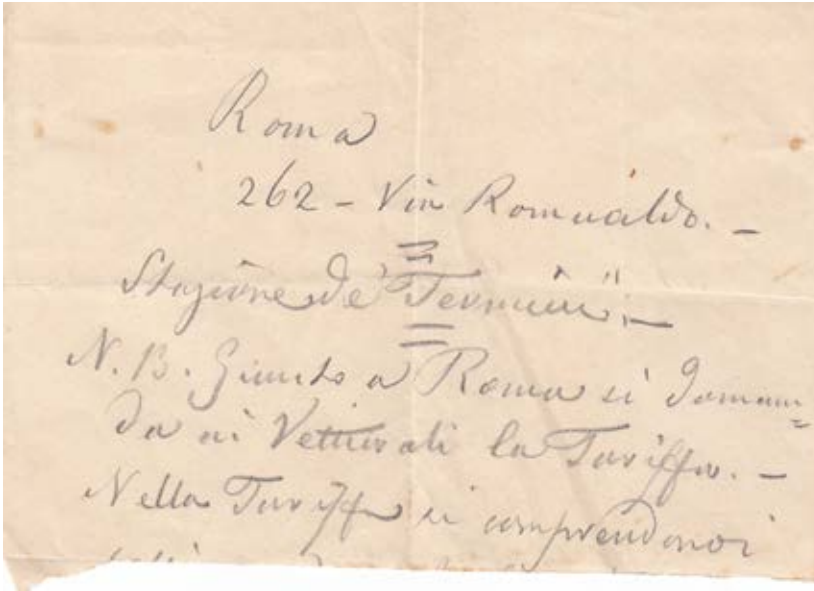 Roma
262 - Via Romualdo. -
Stazione de' Termini. -
N.B. Giunto a Roma si doman=
da ai Vetturali la Tariffa. -
Nella Tariffa si comprendono i